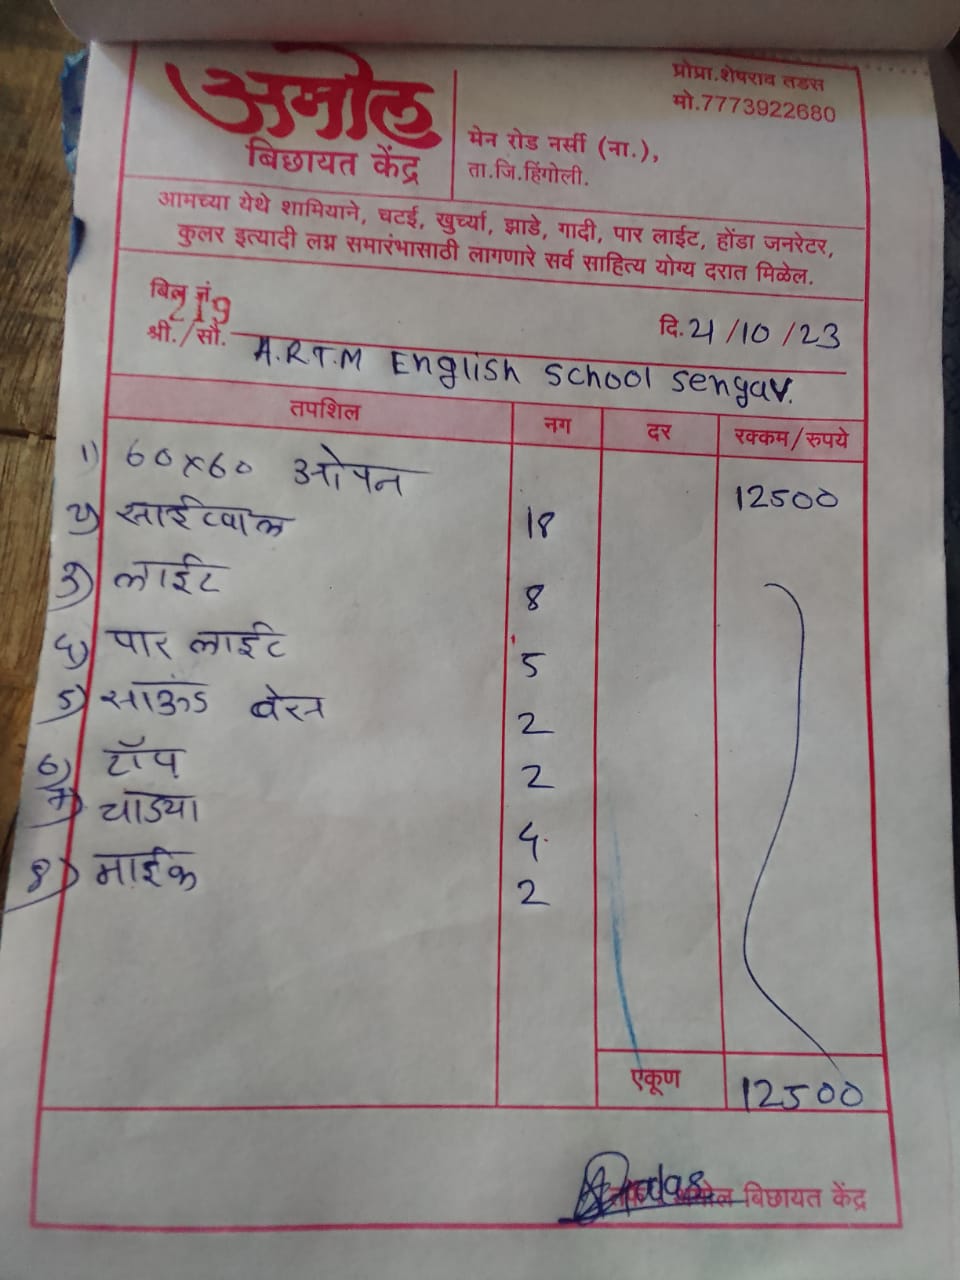 अमोल
बिछायत केंद्र
प्रोप्रा.शेषराव तडस
मो.7773922680
मेन रोड नर्सी (ना.),
ता.जि.हिंगोली.
आमच्या येथे शामियाने, चटई, खुर्च्या, झाडे, गादी, पार लाईट, होंडा जनरेटर,
कुलर इत्यादी लग्न समारंभासाठी लागणारे सर्व साहित्य योग्य दरात मिळेल.
बिल नं. 219
दि. 21/10/23
श्री./सौ. A.R.T.M English School Sengav.
तपशिल नग दर रक्कम/रुपये
1) 60x60 ओपन 12500
2) साईटवाल 18
3) लाईट 8
4) पार लाईट 5
5) साऊंड बेस 2
6) टॉप 2
7) 4
8) माईक 2
एकूण 12500
बिछायत केंद्र